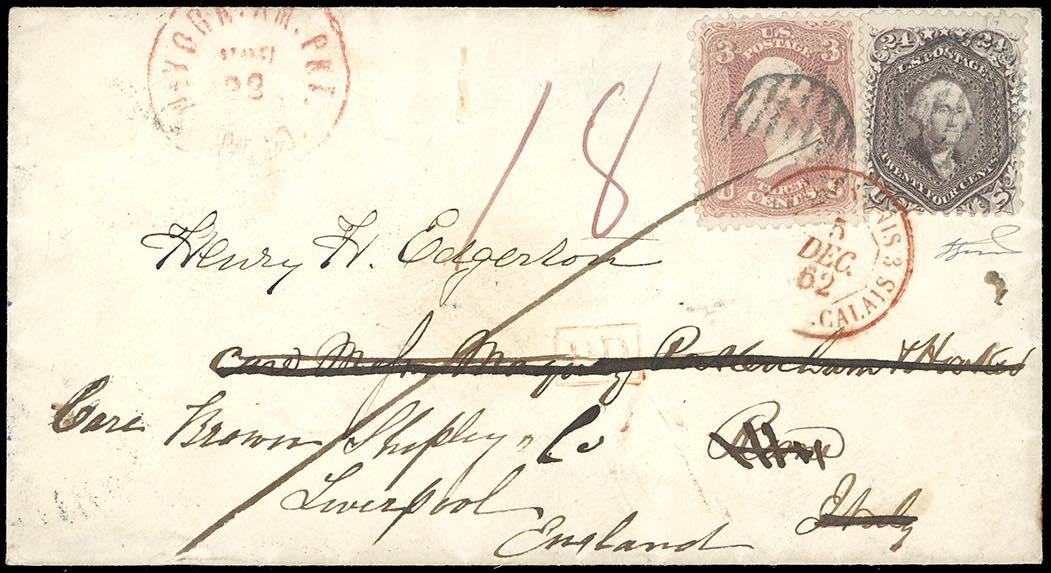 NEW YORK AM. PKT.
22
3 U.S. POSTAGE 3
THREE CENTS
24 U.S. POSTAGE 24
TWENTY FOUR CENTS
18
5
DEC.
62
CALAIS
Henry H. Edgerton
PD
Care Messrs &
Care Brown Shipley & Co
Rome
Liverpool
Italy
England